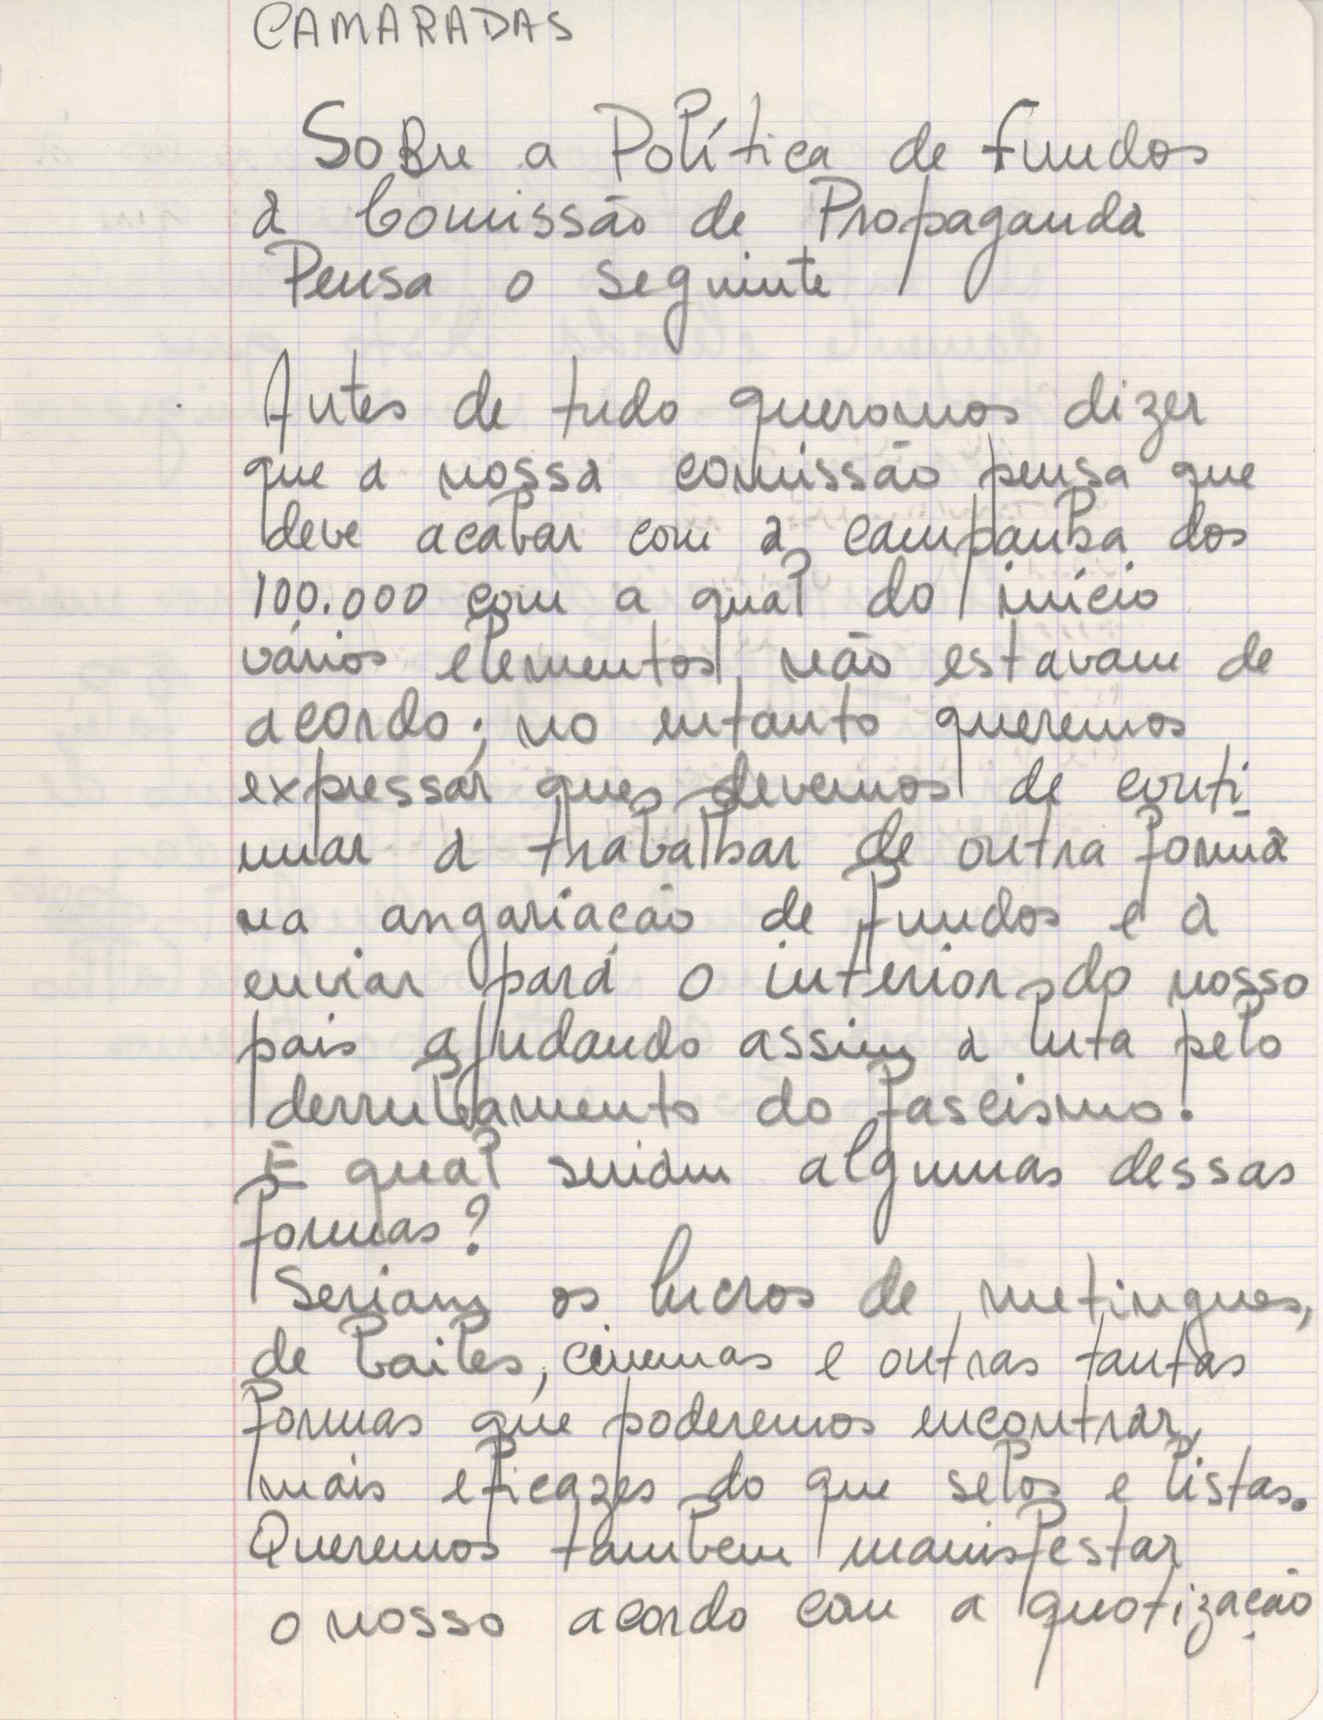 CAMARADAS
Sobre a Política de fundos
a Comissão de Propaganda
Pensa o seguinte
Antes de tudo queromos dizer
que a nossa comissão pensa que
deve acabar com a campanha dos
100.000 com a qual do início
vários elementos não estavam de
acordo; no entanto queremos
expressar que devemos de conti
nuar a trabalhar de outra forma
na angariacão de fundos e a
enviar para o interior do nosso
pais ajudando assim a luta pelo
derrubamento do fascismo.
E qual seriam algumas dessas
formas?
Seriam os lucros de metingues,
de bailes, cinemas e outras tantas
formas que poderemos encontrar,
mais eficazes do que selos e listas.
Queremos tambem manisfestar
o nosso acordo com a quotização